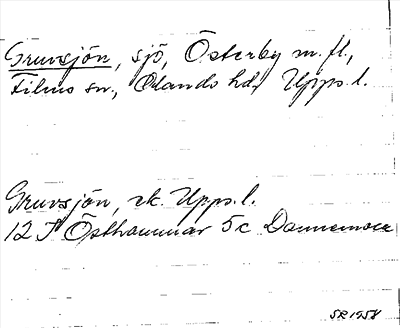 Gruvsjön, sjö, Österby m. fl.,
Films sn., Olands hd. Upps. l.
Gruvsjön, rk. Upps. l.
12 I Östhammar 5c Dannemora
SR 1958